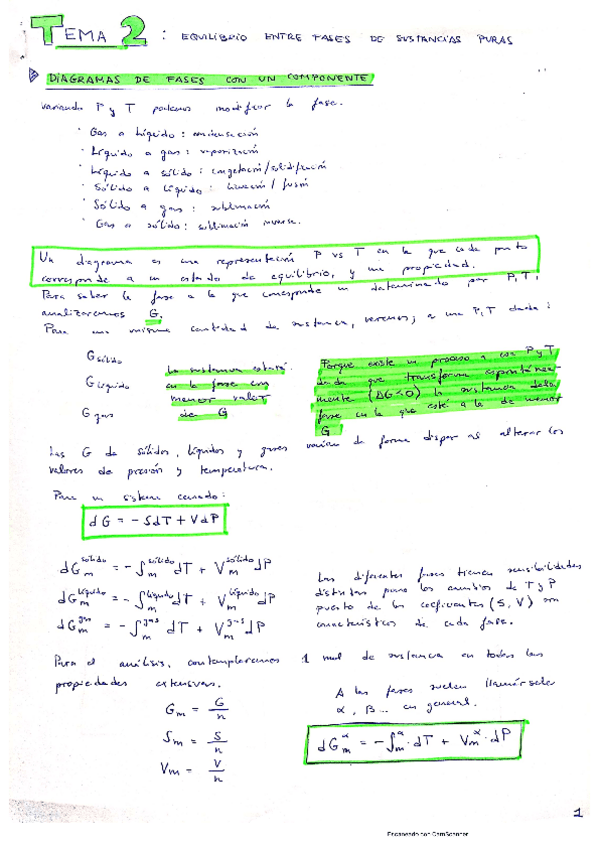 TEMA 2 : EQUILIBRIO ENTRE FASES DE SUSTANCIAS PURAS
DIAGRAMAS DE FASES CON UN COMPONENTE
variando P y T podemos modificar la fase.
· Gas a líquido: condensación
· Líquido a gas: vaporización
· Líquido a sólido: congelación/solidificación
· Sólido a líquido: licuación / fusión
· Sólido a gas: sublimación
· Gas a sólido: sublimación inversa.
Un diagrama es una representación P vs T en la que cada punto
corresponde a un estado de equilibrio, y una propiedad.
Para saber la fase a la que corresponde un determinado par P, T,
analizaremos G.
Para una misma cantidad de sustancia, veremos; a una P, T dada:
G sólido
G líquido
G gas
La sustancia estará
en la fase con
menor valor
de G
Porque existe un proceso a esa P y T
dada que transforma espontánea-
mente (ΔG<0) la sustancia desde
fase en la que esté a la de menor
G
Las G de sólidos, líquidos y gases varían de forma dispar al alterar los
valores de presión y temperatura.
Para un sistema cerrado:
dG = -SdT + VdP
dG_m^sólido = - S_m^sólido dT + V_m^sólido dP
dG_m^líquido = - S_m^líquido dT + V_m^líquido dP
dG_m^gas = - S_m^gas dT + V_m^gas dP
Las diferentes fases tienen sensibilidades
distintas para los cambios de T y P
puesto de los coeficientes (S, V) son
característicos de cada fase.
Para el análisis, contemplaremos 1 mol de sustancia en todas las
propiedades extensivas.
G_m = G/n
S_m = S/n
V_m = V/n
A las fases suelen llamárseles
α, β... en general.
dG_m^α = - S_m^α · dT + V_m^α · dP
1
Escaneado con CamScanner